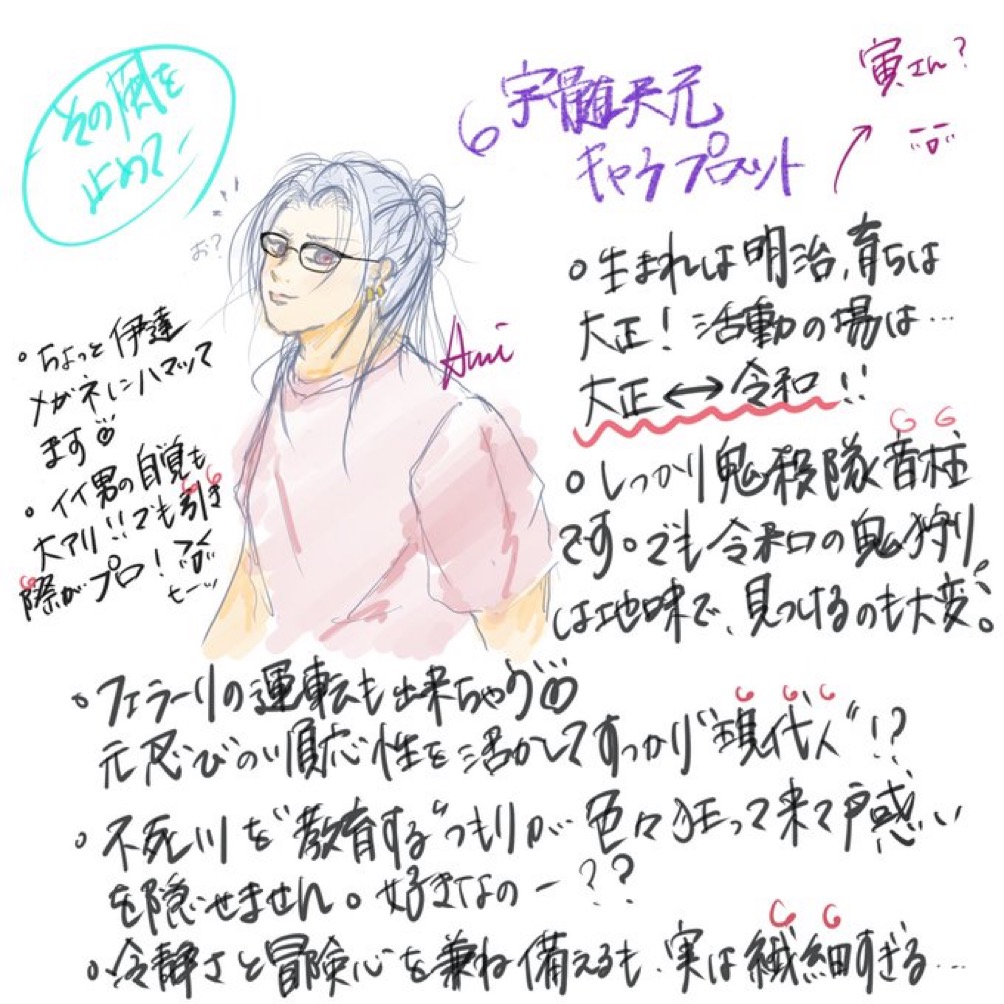 その風を
止めて-
宇髄天元
キャラプロット
寅さん?
お?
Ami
○生まれは明治、育ちは
大正!活動の場は…
大正↔令和!!
○しっかり鬼殺隊音柱
です。でも令和の鬼狩り
は地味で、見つけるのも大変。
○ちょっと伊達
メガネにハマッて
ます
○イイ男の自覚も
大アリ!!でも引き
際がプロ!
ヒーッ
○フェラーリの運転も出来ちゃう
元忍びの順応性を活かしてすっかり"現代人"!?
○不死川を"教育する"つもりが…色々狂って来て戸惑い
を隠せません。好きなのー??
○冷静さと冒険心を兼ね備えるも、実は繊細すぎる…